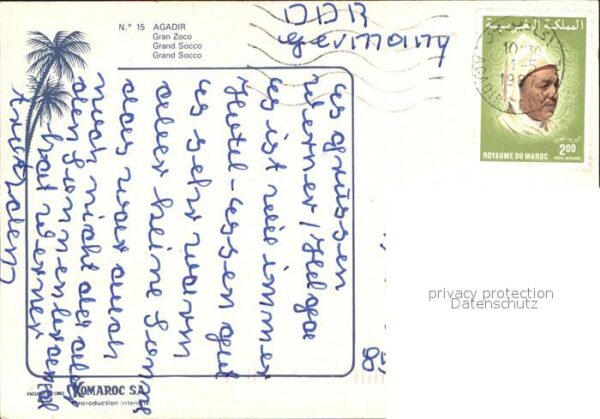 N.° 15 AGADIR
Gran Zoco
Grand Socco
Grand Socco
DDR
Germany
المملكة المغربية
AGADIR
البريد الجوي
2.00
ROYAUME DU MAROC
POSTE AERIENNE
Es grüssen
Werner / Helga
Es ist wie immer
Hotel - Essen gut
es sehr warm
aber keine Sonne
das war auch
noch nicht da aber
den Sonnenbrand
hat Werner
trotzdem
85
privacy protection
Datenschutz
ESCUDO DE ORO
KOMAROC S.A.
Reproduction interdite